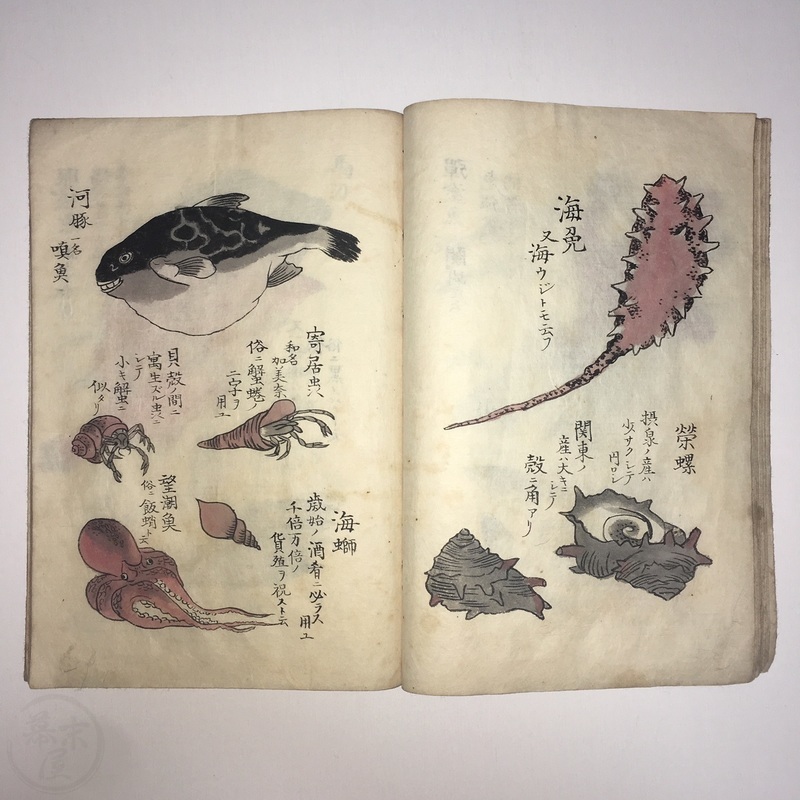 海兎
又海ウジトモ云フ
榮螺
摂泉ノ産ハ
少サクシテ
円ロシ
関東ノ
産ハ大キニ
シテ
殻ニ角アリ
河豚
一名
嗔魚
寄居虫ハ
和名
加美奈
俗ニ蟹蜷ノ
二字ヲ
用ユ
貝殻ノ間ニ
寓生スル虫ニ
シテ
小キ蟹虫ニ
似タリ
海螄
歳始ノ酒肴ニ必ラス
用ユ
千倍万倍ノ
貨殖ヲ祝スト云
望潮魚
俗ニ飯蛸ト云
幕末屋